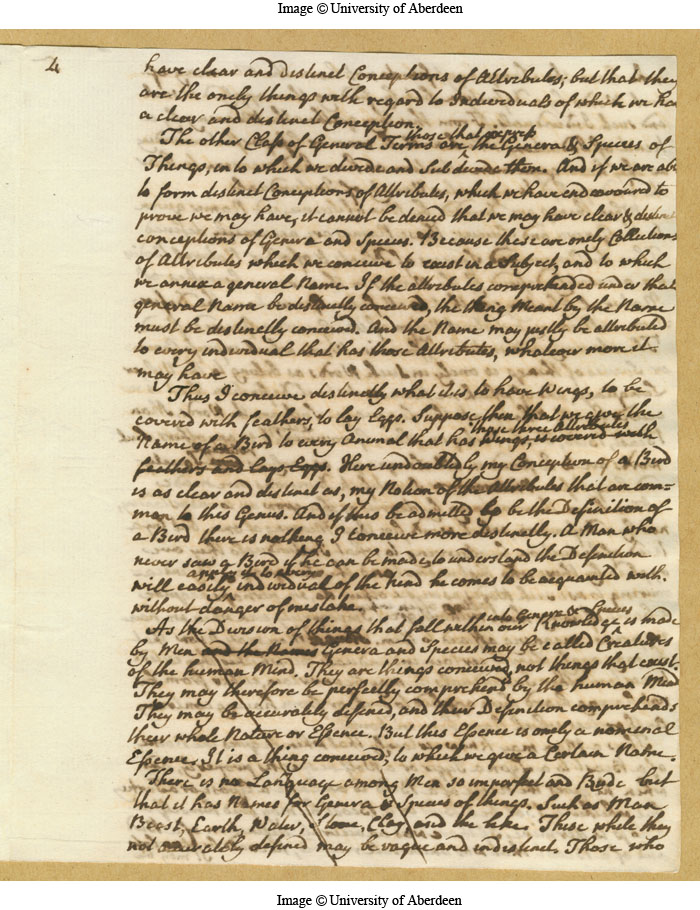 Image © University of Aberdeen
4
have clear and distinct Conceptions of Attributes; but that they
are the onely things with regard to Individuals of which we ha
a clear and distinct Conception.
those that express
The other Class of General Terms are the Genera & Species of
Things, in to which we divide and Subdivide them. And if we are abl
to form distinct Conceptions of Attributes, which we have endeavoured to
prove we may have, it cannot be denied that we may have clear & distinct
conceptions of Genera and Species. Because these are onely Collections
of Attributes which we conceive to exist in a Subject, and to which
we annex a general Name. If the attributes comprehended under that
general Name be distinctly conceived, the thing Meant by the Name
must be distinctly conceived. And the Name may justly be attributed
to every individual that has those Attributes, whatever more it
may have
Thus I conceive distinctly what it is to have Wings, to be
covered with feathers, to lay Eggs. Suppose then that we give the
those three Attributes
Name of a Bird to every Animal that has Wings, is covered with
feathers and lays Eggs. Here undoubtedly my Conception of a Bird
is as clear and distinct as, my Notion of the Attributes that are com=
mon to this Genus. And if this be admitted to be the Definition of
a Bird there is nothing I conceive more distinctly. A Man who
never saw a Bird if he can be made to understand the Definition
apply it to every
will easily individual of the kind he comes to be acquainted with.
without danger of mistake.
into Genera & Species
As the Division of things that fall within our Knowledge is made
by Men and the Names Genera and Species may be called Creatures
of the human Mind. They are things conceived, not things that exist.
They may therefore be perfectly comprehend by the human Mind
They may be accurately defined, and their Definition comprehends
their whole Nature or Essence. But this Essence is onely a nominal
Essence. It is a thing conceived, to which we give a Certain Name.
There is no Language among Men so imperfect and Rude but
that it has Names for Genera & Species of things. Such as Man
Beast, Earth, Water, Stone, Clay, and the like. These while they
not accurately defined may be vague and indistinct. Those who
Image © University of Aberdeen